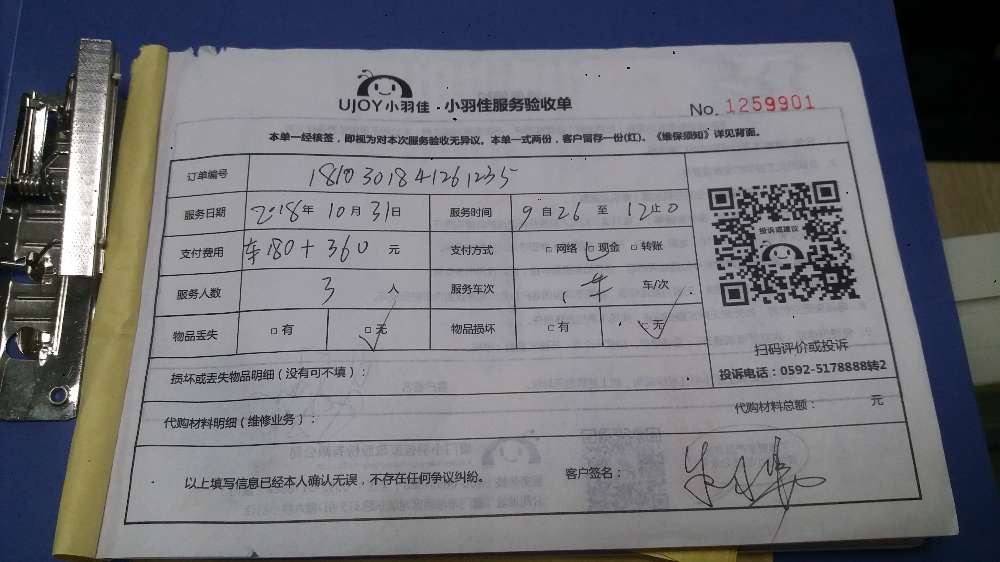 UJOY小羽佳 · 小羽佳服务验收单
No. 1259901
本单一经核签，即视为对本次服务验收无异议。本单一式两份，客户留存一份(红)。《维保须知》详见背面。
订单编号 1810301841261235
服务日期 2018年 10月 31日 服务时间 9自26至12止0
支付费用 车180+360 元 支付方式 □网络 □现金 □转账
服务人数 3 人 服务车次 车/次
物品丢失 □有 □无 物品损坏 □有 □无
投诉或建议
扫码评价或投诉
投诉电话：0592-5178888转2
损坏或丢失物品明细（没有可不填）：
代购材料明细（维修业务）： 代购材料总额： 元
以上填写信息已经本人确认无误，不存在任何争议纠纷。 客户签名：